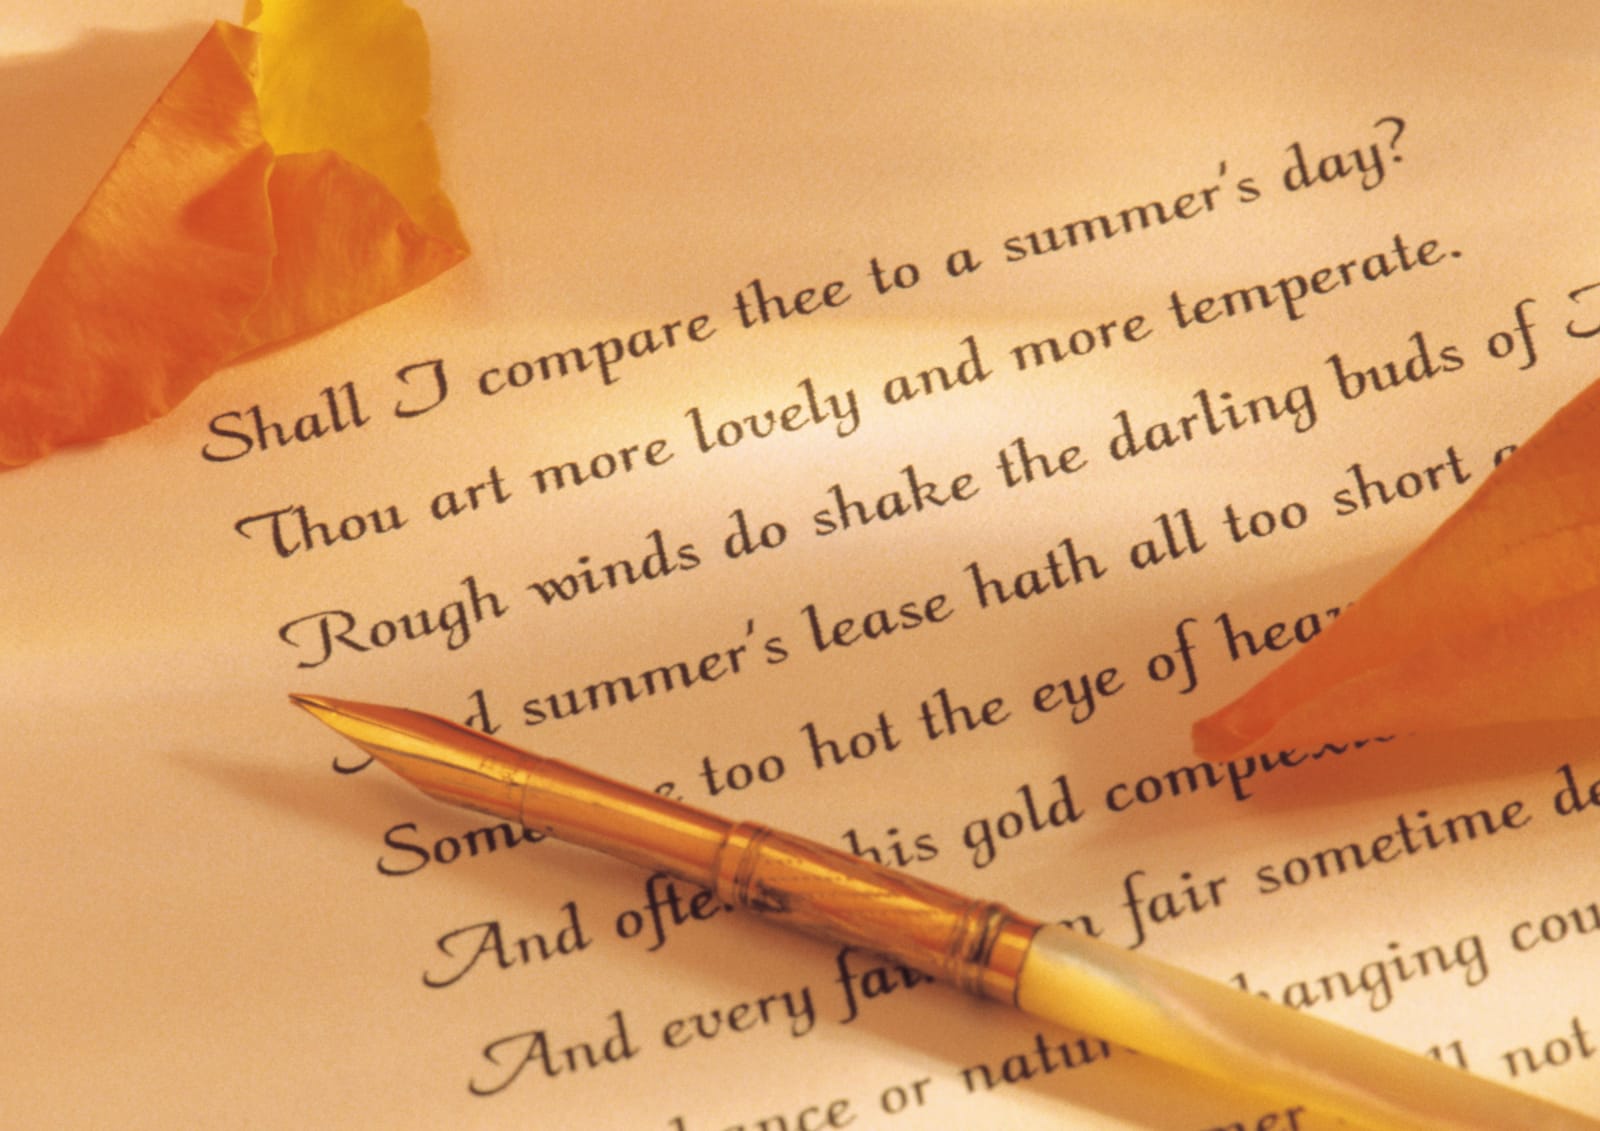 Shall I compare thee to a summer's day?
Thou art more lovely and more temperate.
Rough winds do shake the darling buds of
summer's lease hath all too short
too hot the eye of
And his gold
And every fair sometime
or changing
not